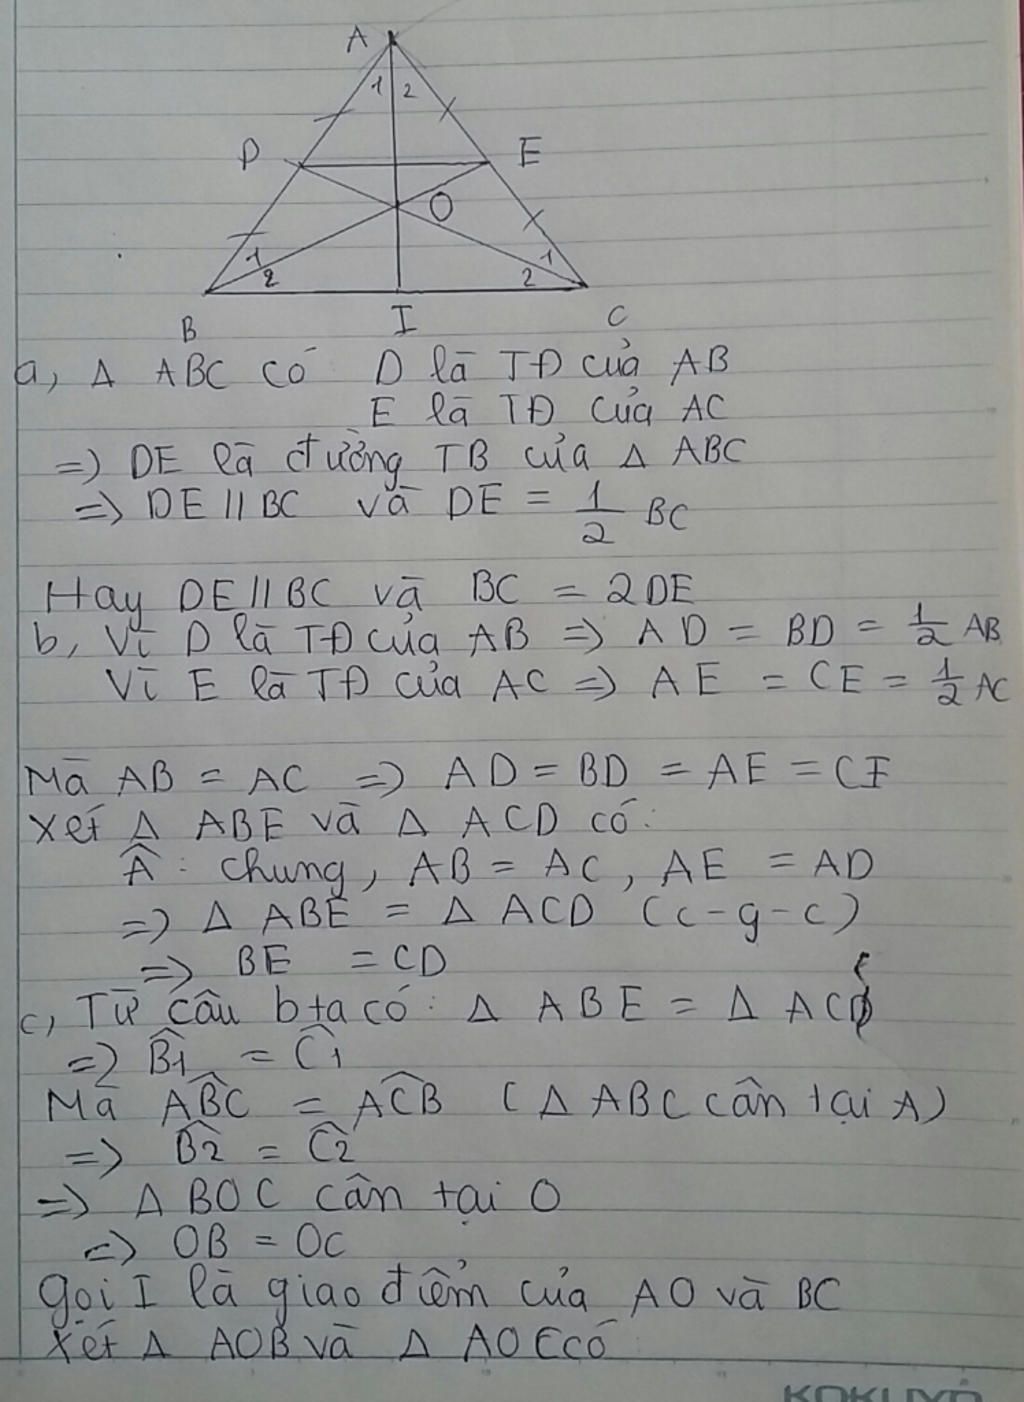 A
1 2
D E
O
1 1
2 2
B I C
a, Δ ABC có D là TĐ của AB
E là TĐ của AC
=> DE là đường TB của Δ ABC
=> DE // BC và DE = 1/2 BC
Hay DE // BC và BC = 2DE
b, Vì D là TĐ của AB => AD = BD = 1/2 AB
Vì E là TĐ của AC => AE = CE = 1/2 AC
Mà AB = AC => AD = BD = AE = CE
Xét Δ ABE và Δ ACD có:
Â: chung, AB = AC, AE = AD
=> Δ ABE = Δ ACD (c-g-c)
=> BE = CD
c, Từ câu b ta có: Δ ABE = Δ ACD
=> B̂1 = Ĉ1
Mà ABC = ACB (Δ ABC cân tại A)
=> B̂2 = Ĉ2
=> Δ BOC cân tại O
=> OB = OC
Gọi I là giao điểm của AO và BC
Xét Δ AOB và Δ AOC có
KOKUYO